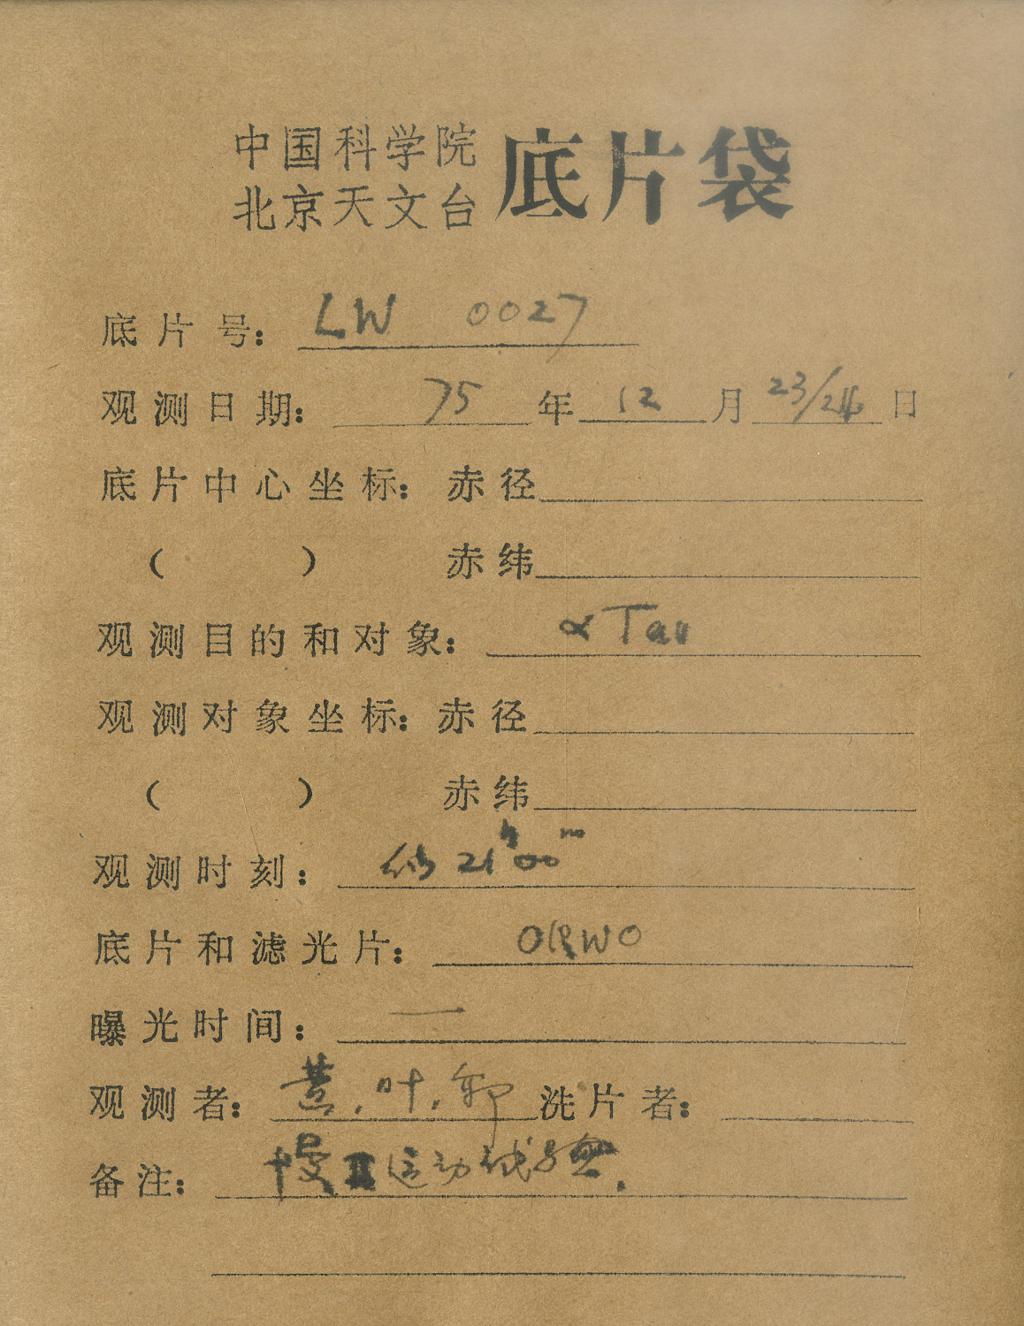 中国科学院
北京天文台
底片袋
底片号： LW 0027
观测日期： 75 年 12 月 23/24 日
底片中心坐标：赤径
（ ） 赤纬
观测目的和对象： α Tau
观测对象坐标：赤径
（ ） 赤纬
观测时刻： 21ʰ00ᵐ
底片和滤光片： ORWO
曝光时间： —
观测者： 黄，叶， 洗片者：
备注： 慢 运动试验.